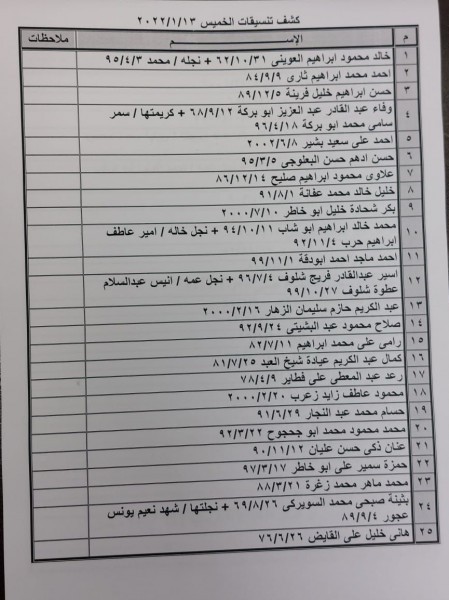 كشف تنسيقات الخميس ٢٠٢٢/١/١٣
م الإســـم ملاحظات
١ خالد محمود ابراهيم العوينى ٦٢/١٠/٣١ + نجله / محمد ٩٥/٤/٣
٢ احمد محمد ابراهيم ثارى ٨٤/٩/٩
٣ حسن ابراهيم خليل قرينة ٨٩/١٢/٥
٤ وفاء عبد القادر عبد العزيز ابو بركة ٦٨/٩/١٢ + كريمتها / سمر
سامى محمد ابو بركة ٩٦/٤/١٨
٥ احمد على سعيد بشير ٢٠٠٢/٦/٨
٦ حسن ادهم حسن البعلوجى ٩٥/٣/٥
٧ علاوى محمود ابراهيم صليح ٨٦/١٢/١٤
٨ خليل خالد محمد عفانة ٩١/٨/١
٩ بكر شحادة خليل ابو خاطر ٢٠٠٠/٧/١٠
١٠ محمد خالد ابراهيم ابو شاب ٩٤/١٠/١١ + نجل خاله / امير عاطف
ابراهيم حرب ٩٢/١١/٤
١١ احمد ماجد احمد ابودقة ٩٩/١١/١
١٢ اسير عبدالقادر فريج شلوف ٩٦/٧/٤ + نجل عمه / انيس عبدالسلام
عطوة شلوف ٩٩/١٠/٢٧
١٣ عبد الكريم حازم سليمان الزهار ٢٠٠٠/٢/١٦
١٤ صلاح محمود عبد البشيتى ٩٢/٩/٢٤
١٥ رامى على محمد ابراهيم ٨٢/٧/١١
١٦ كمال عبد الكريم عيادة شيخ العبد ٨١/٧/٢٥
١٧ رعد عبد المعطى على فطاير ٧٨/٤/٩
١٨ محمود عاطف زايد زعرب ٢٠٠٠/٢/٢٠
١٩ حسام محمد عبد النجار ٩١/٦/٢٩
٢٠ محمد محمود محمد ابو جحجوح ٩٢/٣/٢٢
٢١ عنان ذكى حسن عليان ٩٠/١١/١٢
٢٢ حمزة سمير على ابو خاطر ٩٧/٣/١٧
٢٣ محمد ماهر محمد زغرة ٨٨/٣/٢١
٢٤ بثينة صبحى محمد السويركى ٦٩/٨/٢٦ + نجلتها / شهد نعيم يونس
عجور ٨٩/٩/٤
٢٥ هانى خليل على القايض ٧٦/٦/٢٦